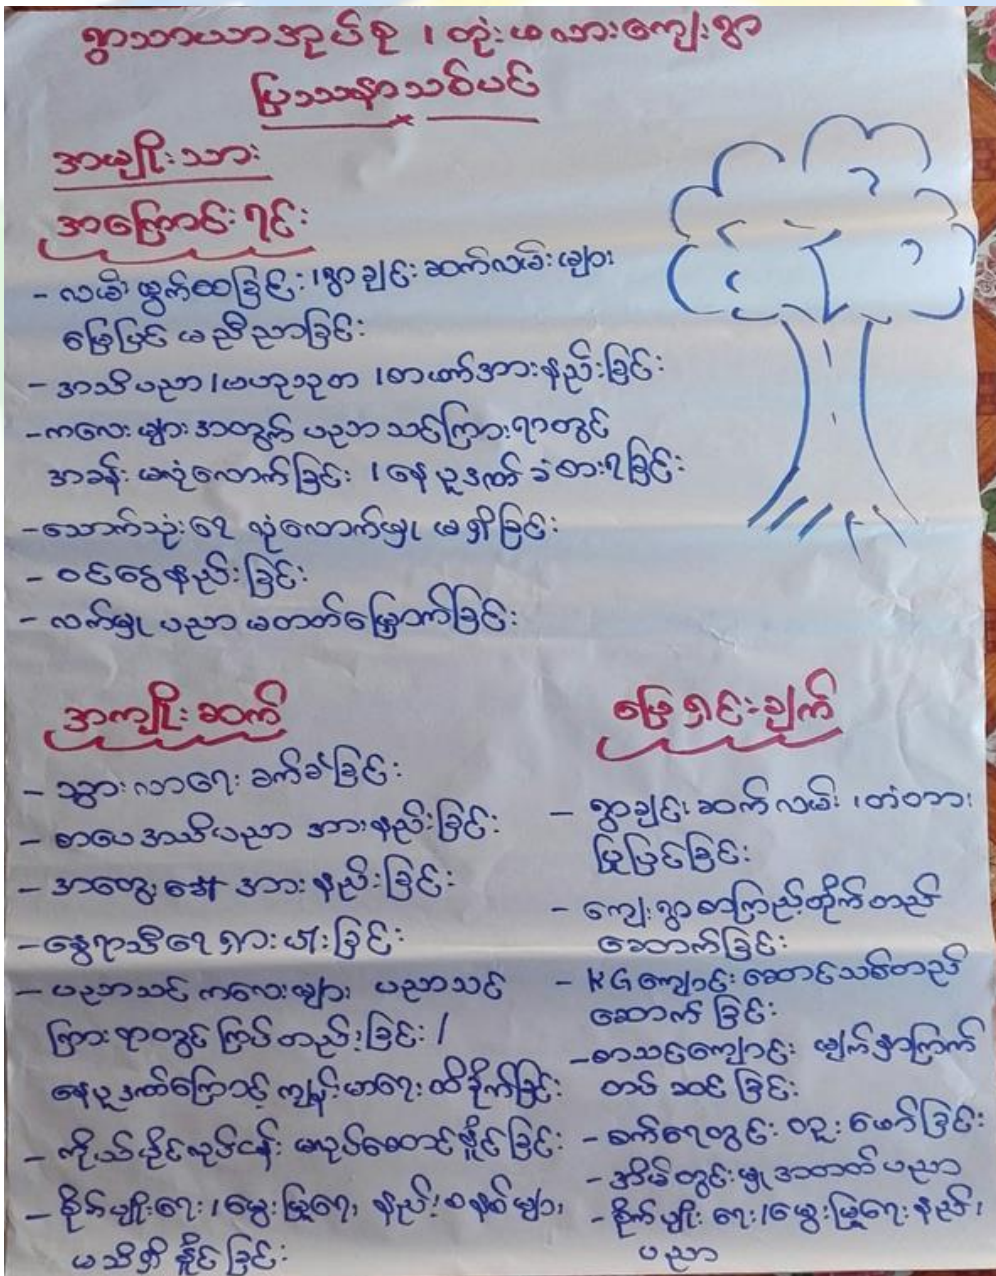 ရွာသာယာအုပ်စု ၊ တုံးမလားကျေးရွာ
ပြဿနာသစ်ပင်
အမျိုးသား
အကြောင်းရင်း
- လမ်း ထွက်ထခြင်း ၊ ရွာချင်းဆက်လမ်းများ
မြေပြင် မညီညာခြင်း
- အသိပညာ ၊ ဗဟုသုတ ၊ စာဖတ်အားနည်းခြင်း
- ကလေးများအတွက် ပညာသင်ကြားရာတွင်
အခန်း မလုံလောက်ခြင်း ၊ နေပူဒဏ် ခံစားရခြင်း
- သောက်သုံးရေ လုံလောက်မှု မရှိခြင်း
- ဝင်ငွေနည်းခြင်း
- လက်မှု ပညာ မတတ်မြောက်ခြင်း
အကျိုးဆက်
- သွားလာရေး ခက်ခဲခြင်း
- စာပေအသိပညာ အားနည်းခြင်း
- အတွေးအခေါ် အားနည်းခြင်း
- နွေရာသီရေရှားပါးခြင်း
- ပညာသင် ကလေးများ ပညာသင်
ကြားရာတွင် ကြပ်တည်းခြင်း /
နေပူဒဏ်ကြောင့် ကျန်းမာရေး ထိခိုက်ခြင်း
- ကိုယ်ပိုင်လုပ်ငန်း မလုပ်ဆောင်နိုင်ခြင်း
- စိုက်ပျိုးရေး ၊ မွေးမြူရေး နည်းစနစ်များ
မသိရှိနိုင်ခြင်း
ဖြေရှင်းချက်
- ရွာချင်းဆက်လမ်း ၊ တံတား
ပြုပြင်ခြင်း
- ကျေးရွာစာကြည့်တိုက်တည်
ဆောက်ခြင်း
- KG ကျောင်းဆောင်သစ်တည်
ဆောက်ခြင်း
- စာသင်ကျောင်း မျက်နှာကြက်
တပ်ဆင်ခြင်း
- စက်ရေတွင်း တူးဖော်ခြင်း
- အိမ်တွင်းမှု အတတ်ပညာ
- စိုက်ပျိုးရေး ၊ မွေးမြူရေးနည်း
ပညာ